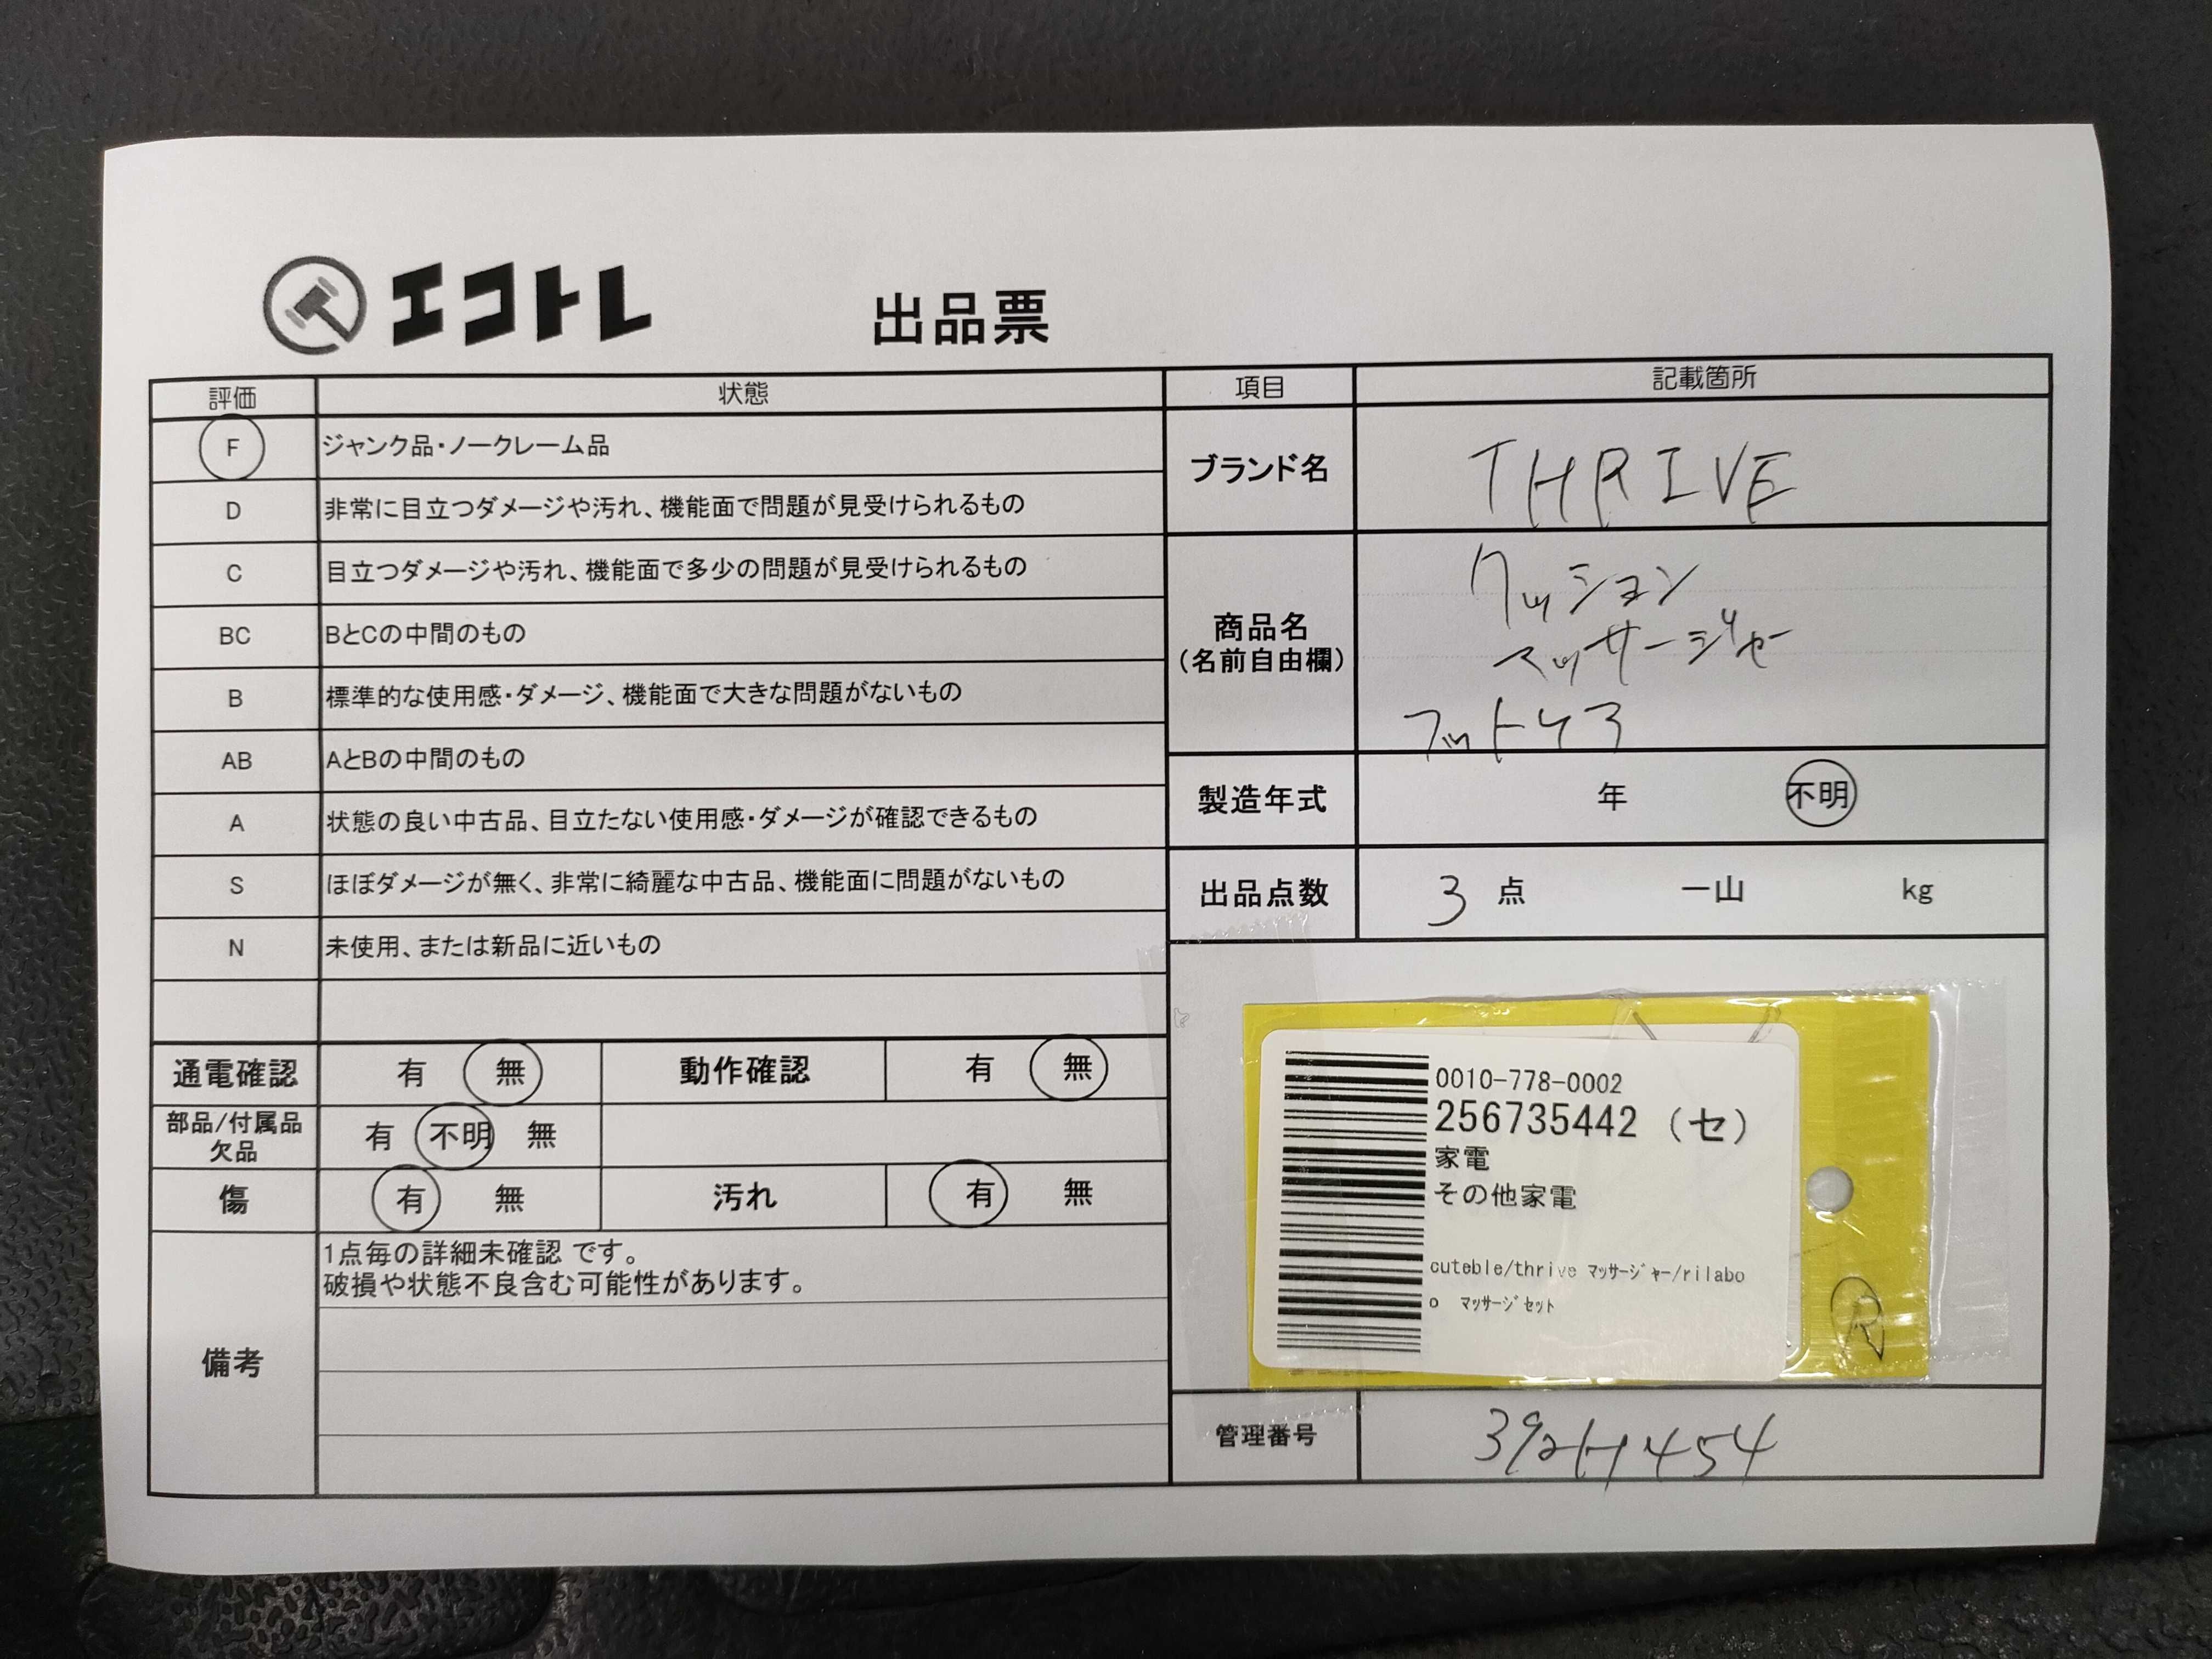 エコトレ
出品票
評価 状態
F ジャンク品・ノークレーム品
D 非常に目立つダメージや汚れ、機能面で問題が見受けられるもの
C 目立つダメージや汚れ、機能面で多少の問題が見受けられるもの
BC BとCの中間のもの
B 標準的な使用感・ダメージ、機能面で大きな問題がないもの
AB AとBの中間のもの
A 状態の良い中古品、目立たない使用感・ダメージが確認できるもの
S ほぼダメージが無く、非常に綺麗な中古品、機能面に問題がないもの
N 未使用、または新品に近いもの
通電確認 有 無 動作確認 有 無
部品/付属品
欠品
有 不明 無
傷 有 無 汚れ 有 無
備考
1点毎の詳細未確認 です。
破損や状態不良含む可能性があります。
項目 記載箇所
ブランド名 THRIVE
商品名
(名前自由欄)
クッション
マッサージャー
フットケア
製造年式 年 不明
出品点数 3 点 一山 kg
0010-778-0002
256735442 (セ)
家電
その他家電
cuteble/thrive マッサージャー/rilabo
o マッサージセット
R
管理番号